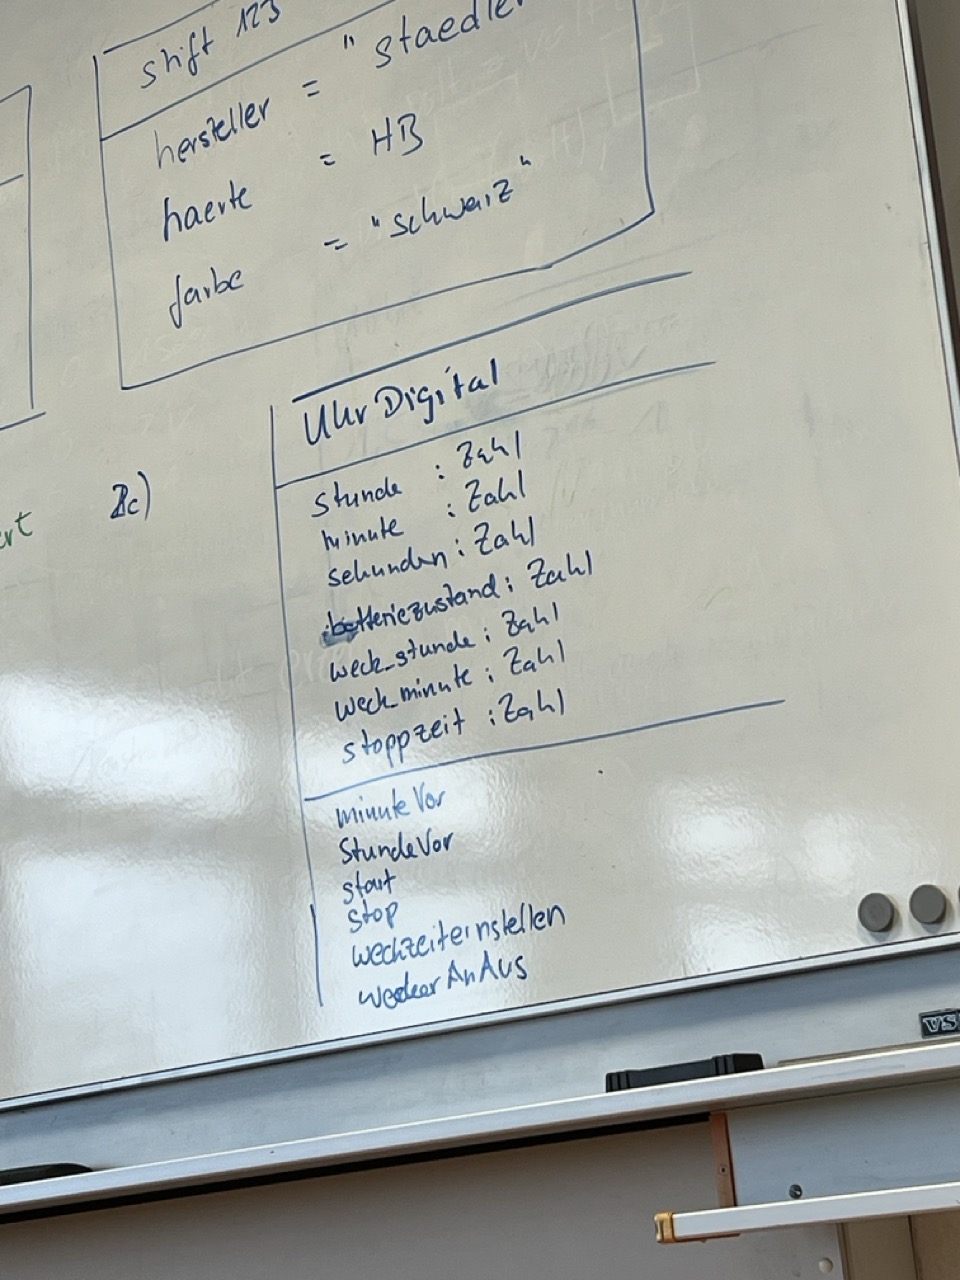 stift 123
hersteller = "staedler
haerte = HB
farbe = "schwarz"
2c)
UhrDigital
stunde : Zahl
minute : Zahl
sekunden : Zahl
batteriezustand : Zahl
weck_stunde : Zahl
weck_minute : Zahl
stoppzeit : Zahl
minuteVor
StundeVor
start
stop
weckzeiteinstellen
weckerAnAus